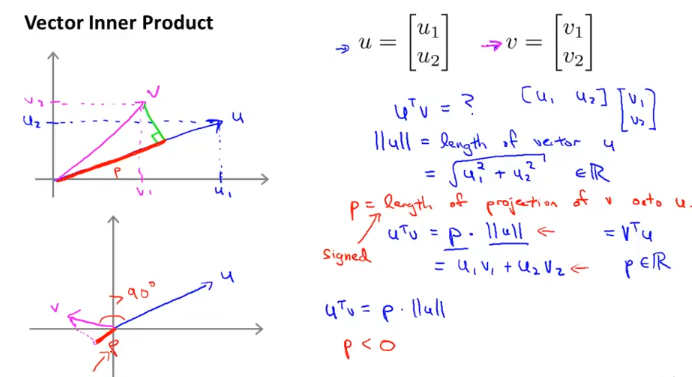 Vector Inner Product
u = [u₁ u₂]
v = [v₁ v₂]
uᵀv = ? [u₁ u₂] [v₁ v₂]
||u|| = length of vector u
= √(u₁² + u₂²) ∈ ℝ
p = length of projection of v onto u.
signed
uᵀv = p · ||u|| ← = vᵀu
= u₁v₁ + u₂v₂ ← p ∈ ℝ
uᵀv = p · ||u||
p < 0
v
v₂
u₂
u
p
v₁
u₁
> 90°
u
v
p